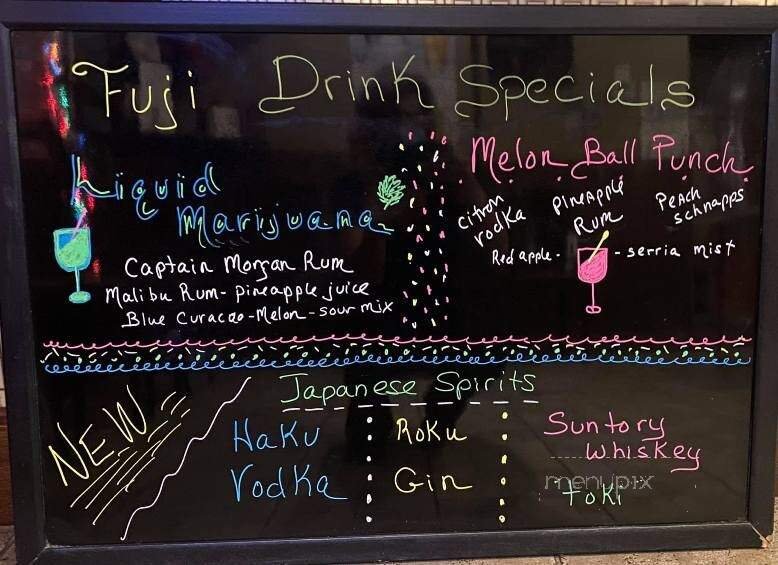 Fuji Drink Specials
Liquid
Marijuana
Captain Morgan Rum
Malibu Rum - pineapple juice
Blue Curacao - Melon - sour mix
Melon Ball Punch
Citron
vodka
Pineapple
Rum
Peach
schnapps
Red apple - - serria mist
Japanese Spirits
NEW
Haku
Vodka
Roku
Gin
Suntory
Whiskey
Toki
menupix